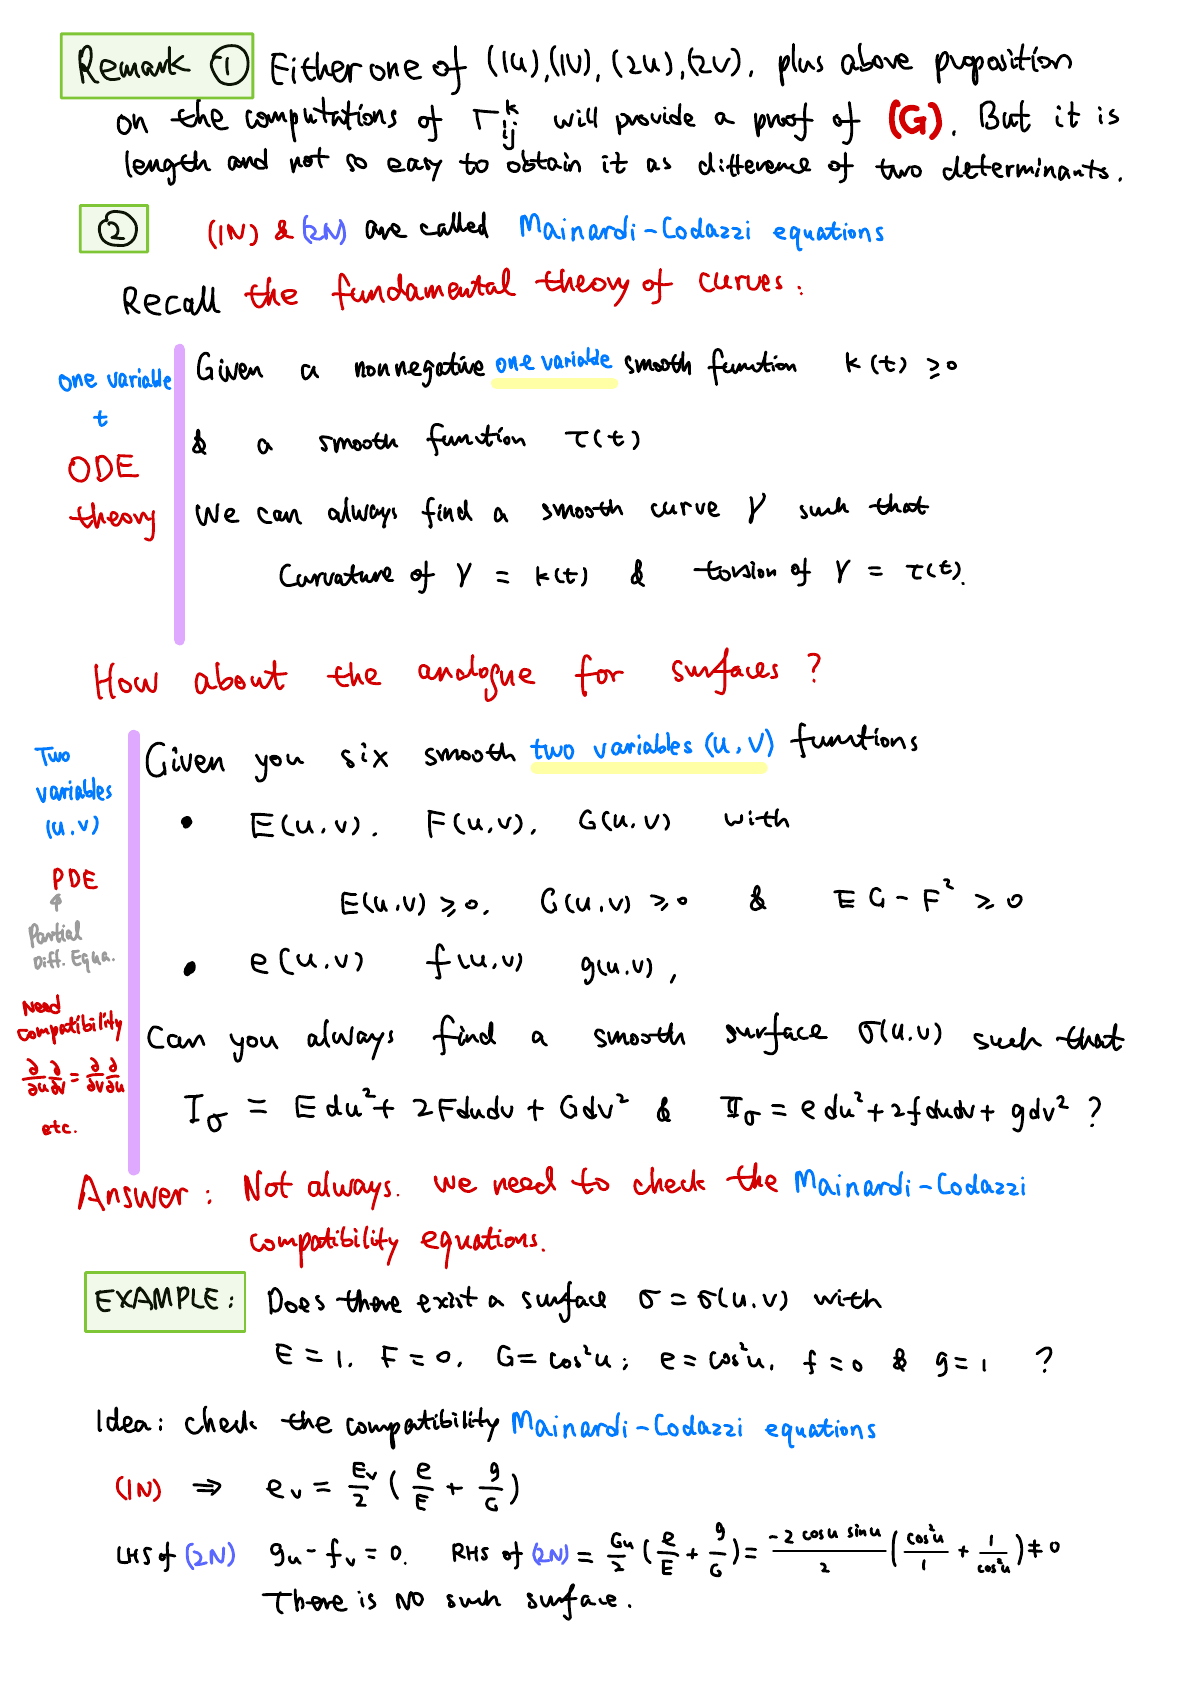 Remark ① Either one of (1u),(1v), (2u),(2v), plus above proposition
on the computations of Γ^k_ij will provide a proof of (G). But it is
length and not so easy to obtain it as difference of two determinants.
② (1N) & (2N) are called Mainardi-Codazzi equations
Recall the fundamental theory of curves:
one variable
t
ODE
theory
Given a nonnegative one variable smooth function k(t) ≥ 0
& a smooth function τ(t)
We can always find a smooth curve γ such that
Curvature of γ = k(t) & torsion of γ = τ(t).
How about the analogue for surfaces?
Two
variables
(u,v)
PDE
↑
Partial
Diff. Equa.
Need
compatibility
∂/∂u ∂/∂v = ∂/∂v ∂/∂u
etc.
Given you six smooth two variables (u,v) functions
• E(u,v), F(u,v), G(u,v) with
E(u,v) ≥ 0, G(u,v) ≥ 0 & EG - F² ≥ 0
• e(u,v) f(u,v) g(u,v),
Can you always find a smooth surface σ(u,v) such that
I_σ = E du² + 2F dudv + G dv² & II_σ = e du² + 2f dudv + g dv² ?
Answer: Not always. We need to check the Mainardi-Codazzi
compatibility equations.
EXAMPLE: Does there exist a surface σ = σ(u,v) with
E = 1, F = 0, G = cos²u; e = cos²u, f = 0 & g = 1 ?
Idea: check the compatibility Mainardi-Codazzi equations
(1N) ⇒ e_v = E_v/2 (e/E + g/G)
LHS of (2N) g_u - f_v = 0. RHS of (2N) = G_u/2 (e/E + g/G) = -2 cosu sinu/2 (cos²u/1 + 1/cos²u) ≠ 0
There is NO such surface.